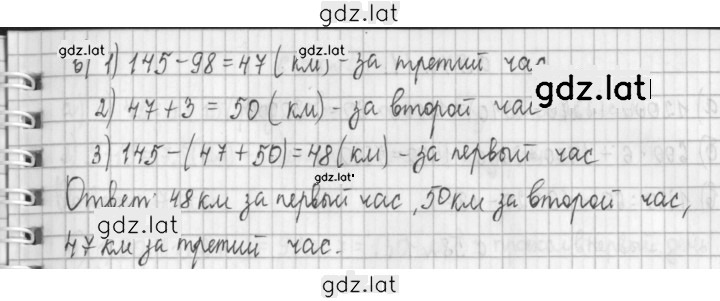 gdz.lat
gdz.lat
б) 1) 145-98=47 (км) - за третий час
gdz.lat
2) 47+3=50 (км) - за второй час
3) 145-(47+50)=48 (км) - за первый час
gdz.lat
Ответ: 48 км за первый час, 50 км за второй час,
gdz.lat
47 км за третий час.
gdz.lat